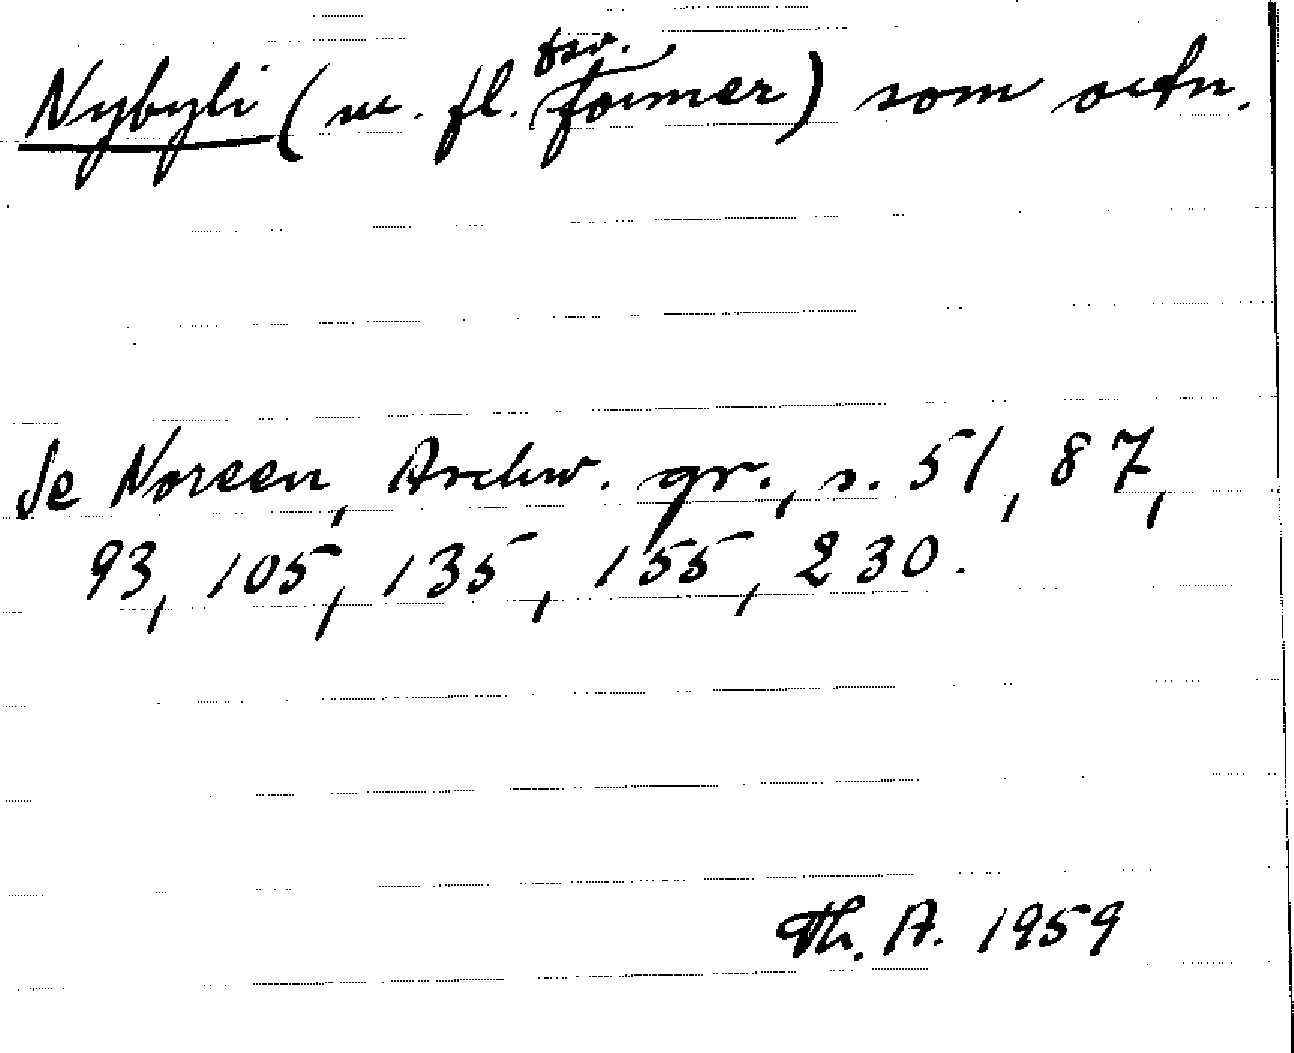 Nybyli (m. fl. fsv. former) som ortn.
Se Noreen, Aschw. gr., s. 51, 87,
93, 105, 135, 155, 230.
Th. A. 1959